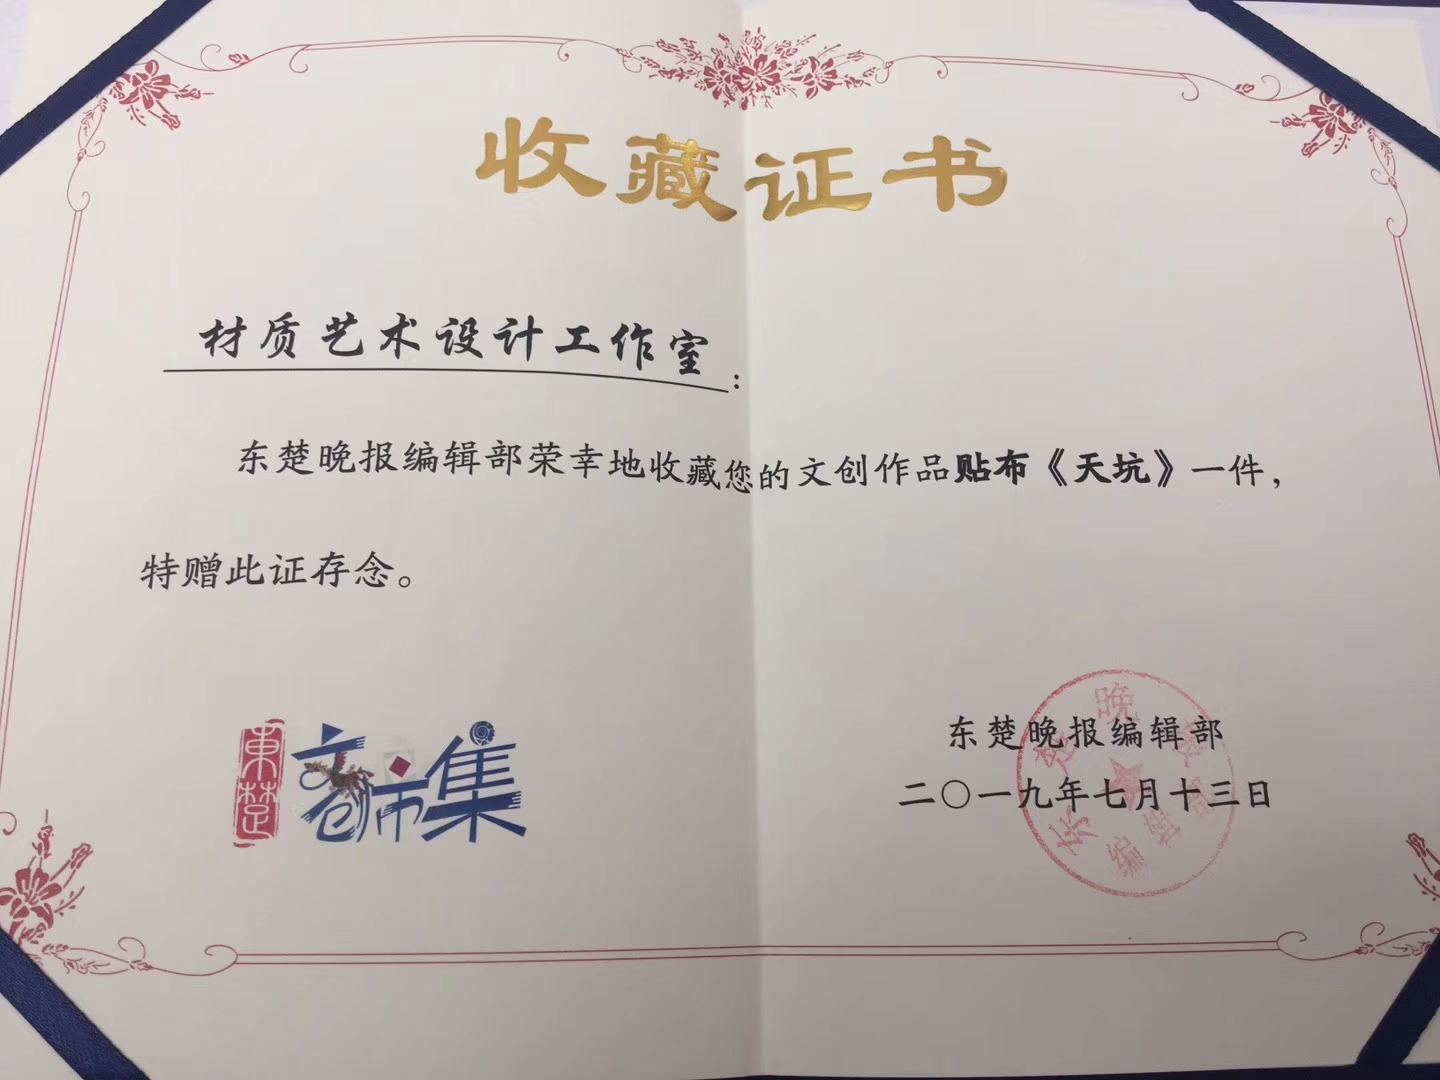 收藏证书
材质艺术设计工作室：
东楚晚报编辑部荣幸地收藏您的文创作品贴布《天坑》一件，
特赠此证存念。
東楚
文创市集
东楚晚报编辑部
二〇一九年七月十三日
东楚晚报
编辑部